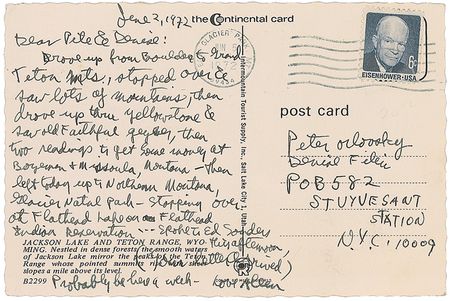 June 2, 1972
the Continental card
Dear Pete & Denise:
Drove up from Boulder to Grand
Teton Mts, stopped over &
saw lots of mountains, then
drove up thru Yellowstone &
saw old Faithful geyser, then
two readings to get some money at
Bozeman & Missoula, Montana - then
left today up to Northern Montana,
Glacier Natal Park - Stopping over
at Flathead Lake on Flathead
Indian Reservation --- Spoke to Ed Sanders
JACKSON LAKE AND TETON RANGE, WYO-
MING. Nestled in dense forests, the smooth waters
of Jackson Lake mirror the peaks of the Teton
Range whose pointed summits rise
slopes a mile above its level.
B2299
Probably be here a week - Love Allen
GLACIER
Intermountain Tourist Supply, Inc., Salt Lake City 1, Utah
6c
EISENHOWER·USA
post card
Peter Orlovsky
Denise
POB 582
STUYVESANT
STATION
N.Y.C. 10009